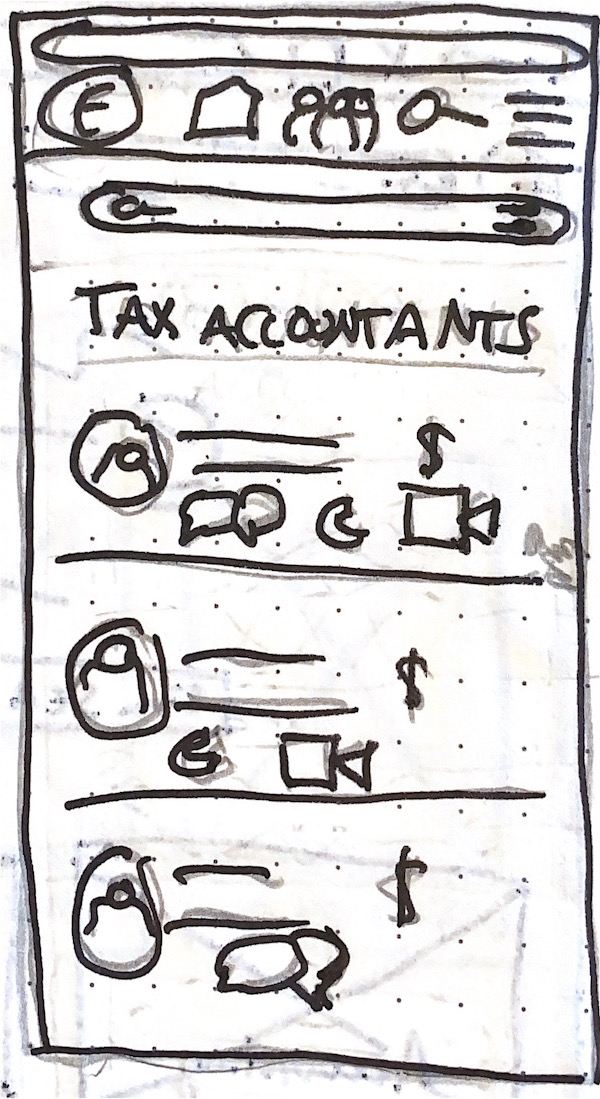 E
TAX ACCOUNTANTS
$
$
$